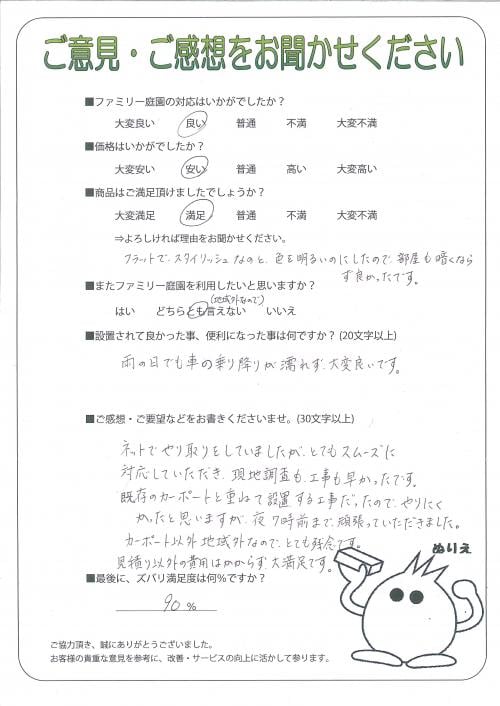 ご意見・ご感想をお聞かせください
■ファミリー庭園の対応はいかがでしたか？
大変良い 良い 普通 不満 大変不満
■価格はいかがでしたか？
大変安い 安い 普通 高い 大変高い
■商品はご満足頂けましたでしょうか？
大変満足 満足 普通 不満 大変不満
⇒よろしければ理由をお聞かせください。
フラットで、スタイリッシュなのと、色を明るいのにしたので、部屋も暗くなら
ず良かったです。
■またファミリー庭園を利用したいと思いますか？
(地域外なので)
はい どちらとも言えない いいえ
■設置されて良かった事、便利になった事は何ですか？(20文字以上)
雨の日でも車の乗り降りが濡れず、大変良いです。
■ご感想・ご要望などをお書きくださいませ。(30文字以上)
ネットでやり取りをしていましたが、とてもスムーズに
対応していただき、現地調査も、工事も早かったです。
既存のカーポートと重ねて設置する工事だったので、やりにく
かったと思いますが、夜7時前まで、頑張っていただきました。
カーポート以外地域外なので、とても残念です。
見積り以外の費用はかからず、大満足です。
ぬりえ
■最後に、ズバリ満足度は何%ですか？
90 %
ご協力頂き、誠にありがとうございました。
お客様の貴重な意見を参考に、改善・サービスの向上に活かして参ります。